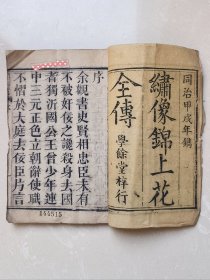 同治甲戌年鐫
繡像錦上花
全傳
學餘堂梓行
序
余觀書史賢相忠臣未有
不被奸佞之讒殺身去國
者獨沂國公王曾少年連
中三元正色立朝辭使職
不慴於大庭去佞臣片言
144515